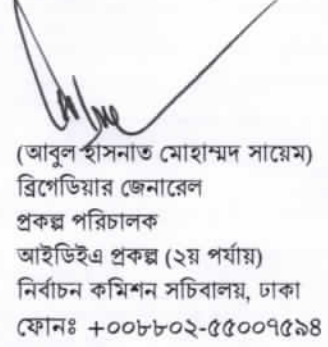 (আবুল হাসনাত মোহাম্মদ সায়েম)
ব্রিগেডিয়ার জেনারেল
প্রকল্প পরিচালক
আইডিইএ প্রকল্প (২য় পর্যায়)
নির্বাচন কমিশন সচিবালয়, ঢাকা
ফোনঃ +০০৮৮০২-৫৫০০৭৫৯৪